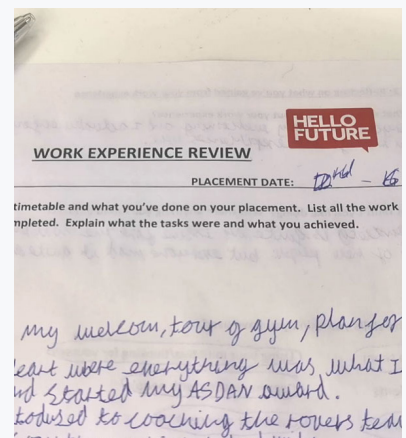 HELLO
FUTURE
WORK EXPERIENCE REVIEW
PLACEMENT DATE:
timetable and what you've done on your placement. List all the work
mpleted. Explain what the tasks were and what you achieved.
my welcom, tour of gym, plan for
eart where everything was, what I
nd started my ASDAN award.
todused to coaching the rovers tea